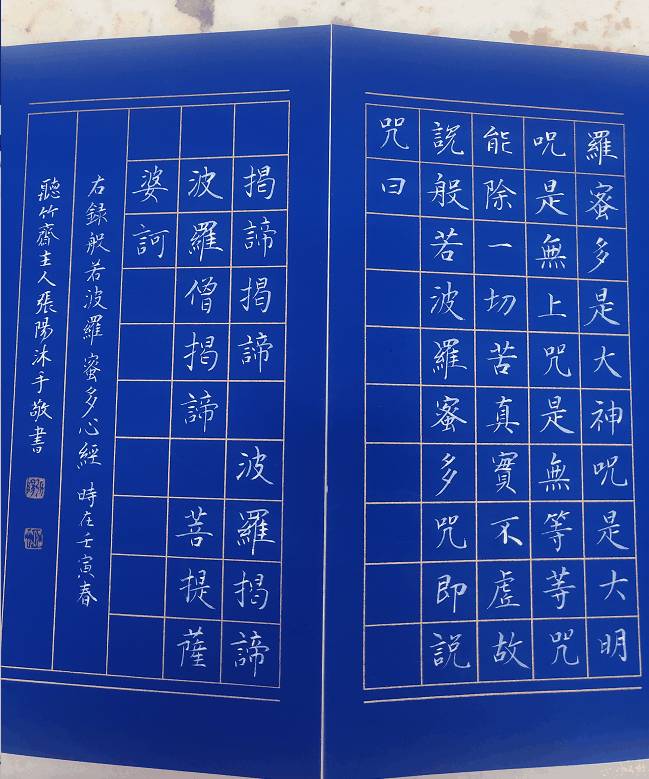 羅蜜多是大神呪是大明
呪是無上咒是無等等咒
能除一切苦真實不虛故
說般若波羅蜜多咒即説
咒曰
揭諦揭諦 波羅揭諦
波羅僧揭諦 菩提薩
婆訶
右録般若波羅蜜多心經 時在壬寅春
聽竹齋主人張陽沐手敬書